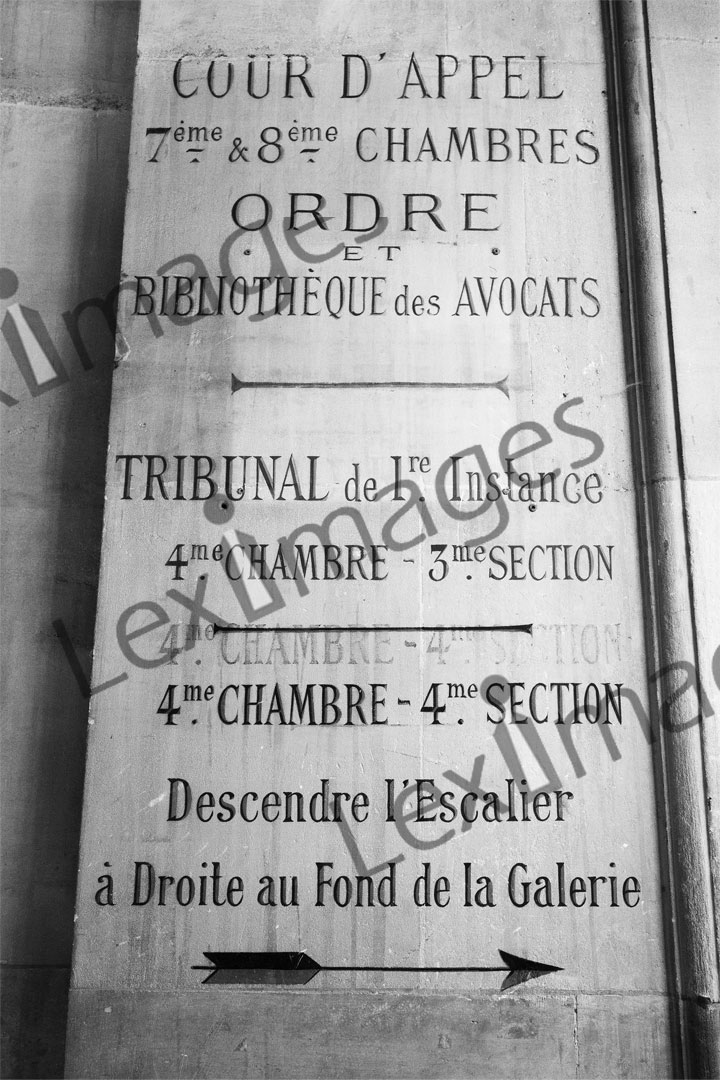 COUR D'APPEL
7ème & 8ème CHAMBRES
ORDRE
ET
BIBLIOTHÈQUE des AVOCATS
TRIBUNAL de 1re. Instance
4me. CHAMBRE - 3me. SECTION
4me. CHAMBRE - 4me. SECTION
4me. CHAMBRE - 4me. SECTION
Descendre l'Escalier
à Droite au Fond de la Galerie
Lexiimages
Lexiimages
Lexiimages